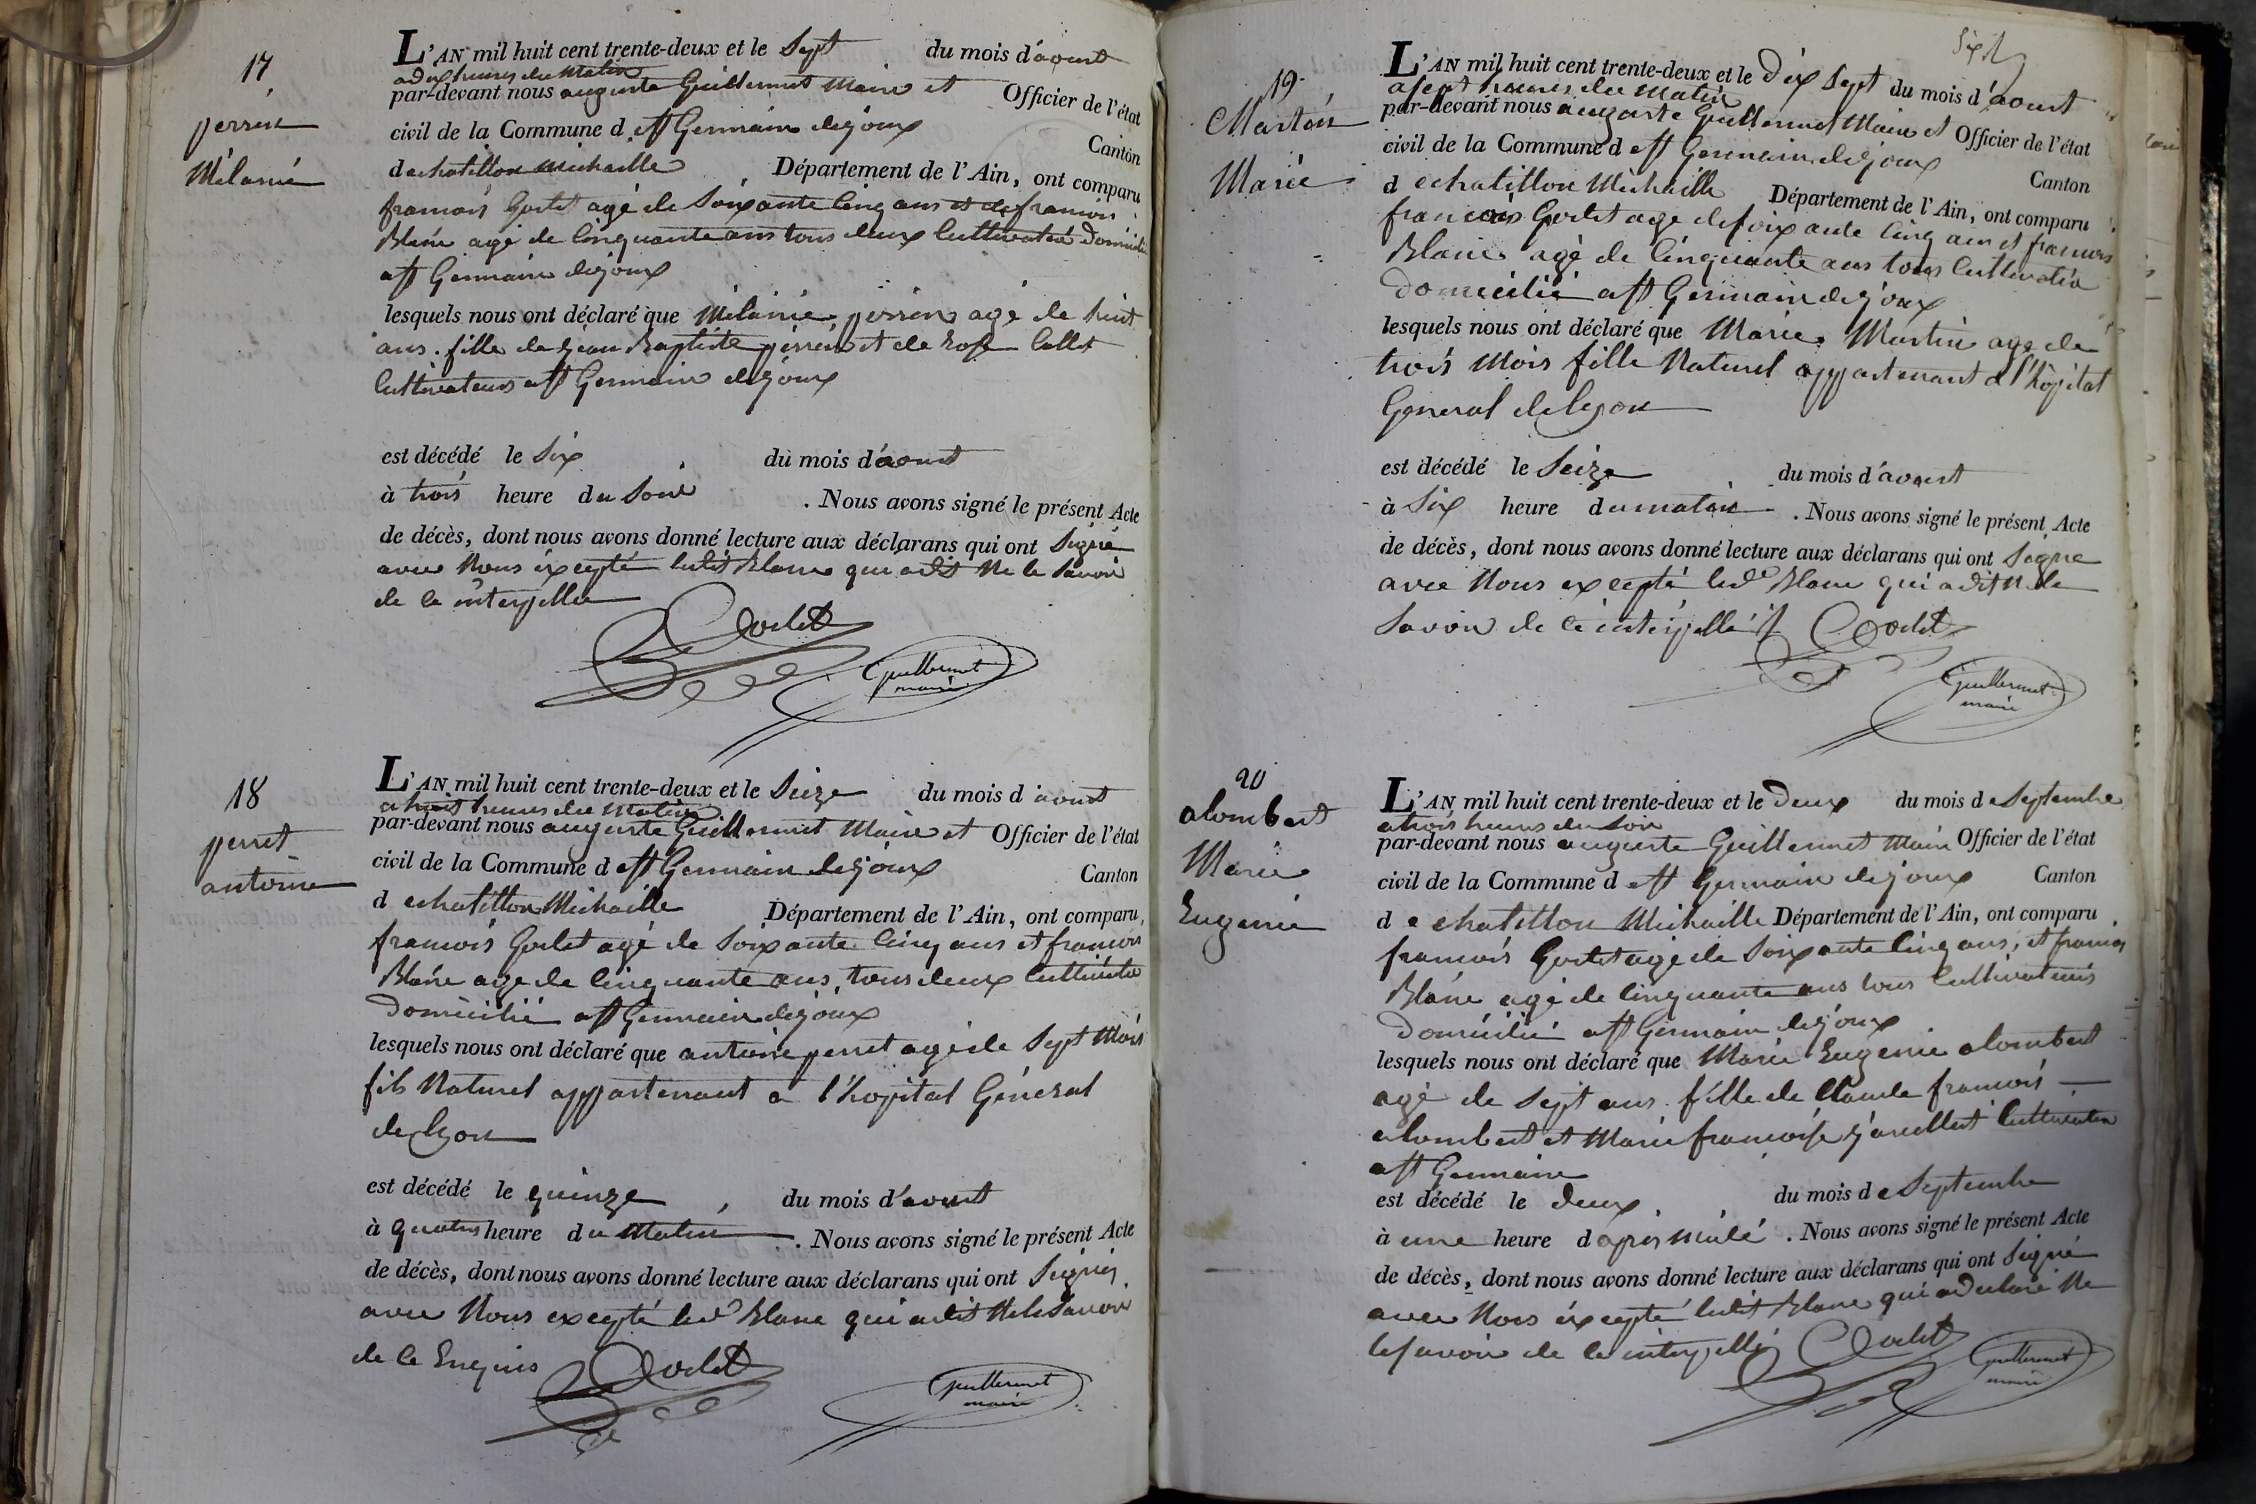 17
perrin
Mélanie
L'AN mil huit cent trente-deux et le Sept du mois d'aoust
a dix heures du matin
par-devant nous auguste Guillermet Maire et Officier de l'état
civil de la Commune d e St Germain de joux Canton
d echatillon Michaille Département de l'Ain, ont comparu
francois Godet agé de Soixante cinq ans et de francois
Blanc agé de Cinquante ans tous deux Cultivateur Domicilié
a St Germain de joux
lesquels nous ont déclaré que Mélanie perrin agé de huit
ans. fille de jean Baptiste perrin et de Rose Collet
Cultivateurs a St Germain de joux
est décédé le Six du mois d'aoust
à trois heure du Soir . Nous avons signé le présent Acte
de décès, dont nous avons donné lecture aux déclarans qui ont Signé
avec Nous éxcepté ledit Blanc qui a dit Ne le Savoir
de ce interpellé
Godet
Guillermet
maire
18
perret
antoine
L'AN mil huit cent trente-deux et le Seize du mois d'aoust
a huit heures du Matin
par-devant nous auguste Guillermet Maire et Officier de l'état
civil de la Commune d e St Germain de joux Canton
d echatillon Michaille Département de l'Ain, ont comparu
francois Godet agé de Soixante Cinq ans et francois
Blanc age de Cinquante ans, tous deux Cultivateur
Domicilié a St Germain de joux
lesquels nous ont déclaré que antoine perret agé de Sept Mois
fils Naturel appartenant a l'hopital Général
de lyon
est décédé le quinze du mois d'aoust
à quatres heure du Matin . Nous avons signé le présent Acte
de décès, dont nous avons donné lecture aux déclarans qui ont Signés
avec Nous excepté led Blanc qui a dit Ne le Savoir
de ce Enquis
Godet
Guillermet
maire
Sixt
19
Martin
Marie
L'AN mil huit cent trente-deux et le Dix Sept du mois d'aoust
a sept heures du Matin
par-devant nous auguste Guillermet Maire et Officier de l'état
civil de la Commune d e St Germain de joux Canton
d echatillon Michaille Département de l'Ain, ont comparu
francois Godet age de soixante Cinq ans et francois
Blanc agé de Cinquante ans tous Cultivateur
Domicilié a St Germain de joux
lesquels nous ont déclaré que Marie Martin age de
trois Mois fille Naturel appartenant a l'hôpital
General de lyon
est décédé le Seize du mois d'aoust
à Six heure du matin . Nous avons signé le présent Acte
de décès, dont nous avons donné lecture aux déclarans qui ont Signe
avec Nous excepté led Blanc qui a dit Ne le
Savoir de ce interpellé Godet
Guillermet
maire
20
alombert
Marie
Eugenie
L'AN mil huit cent trente-deux et le Deux du mois d e Septembre
a trois heures du Soir
par-devant nous auguste Guillermet Maire Officier de l'état
civil de la Commune d e St Germain de joux Canton
d e chatillon Michaille Département de l'Ain, ont comparu
francois Godet agé de Soixante Cinq ans, et francois
Blanc agé de Cinquante ans tous Cultivateurs
Domicilié a St Germain de joux
lesquels nous ont déclaré que Marie Eugenie alombert
agé de Sept ans. fille de Claude francois
alombert et Marie francoise Cultivateur
a St Germain
est décédé le Deux du mois d e Septembre
à une heure d apres midé . Nous avons signé le présent Acte
de décès, dont nous avons donné lecture aux déclarans qui ont Signé
avec Nous éxcepté ledit Blanc qui a declaré Ne
le savoir de ce interpellé Godet
Guillermet
maire